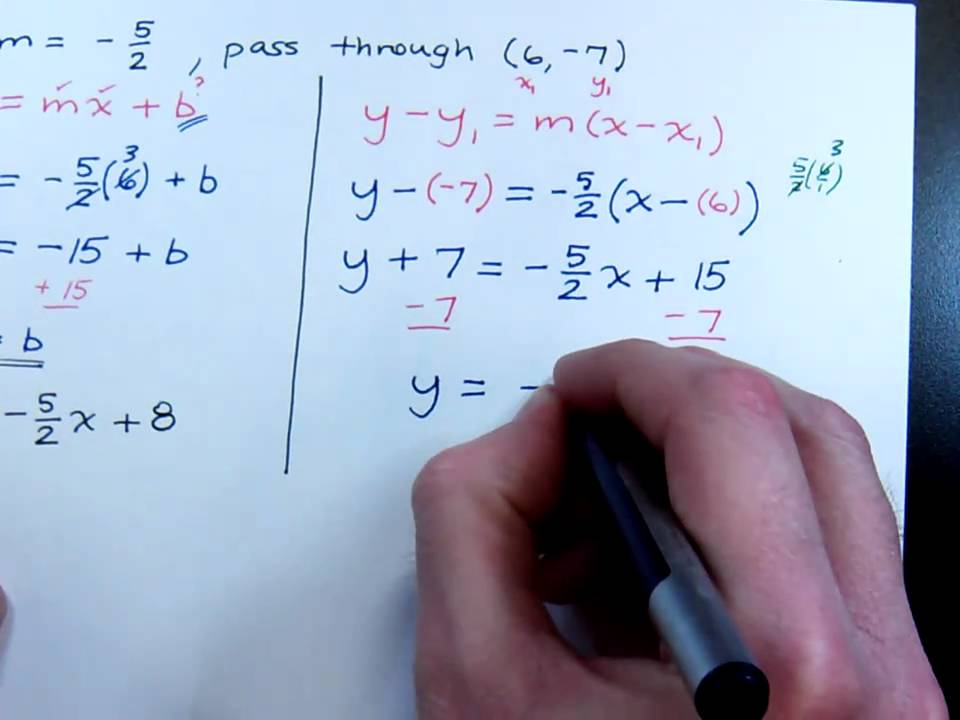 m = - 5/2 , pass through (6, -7)
x₁ y₁
= mx + b ?
= - 5/2 (6) + b
3
= -15 + b
+ 15
= b
- 5/2 x + 8
y - y₁ = m(x - x₁)
y - (-7) = - 5/2 (x - (6))
5/2 (6/1) 3
y + 7 = - 5/2 x + 15
- 7 - 7
y = -